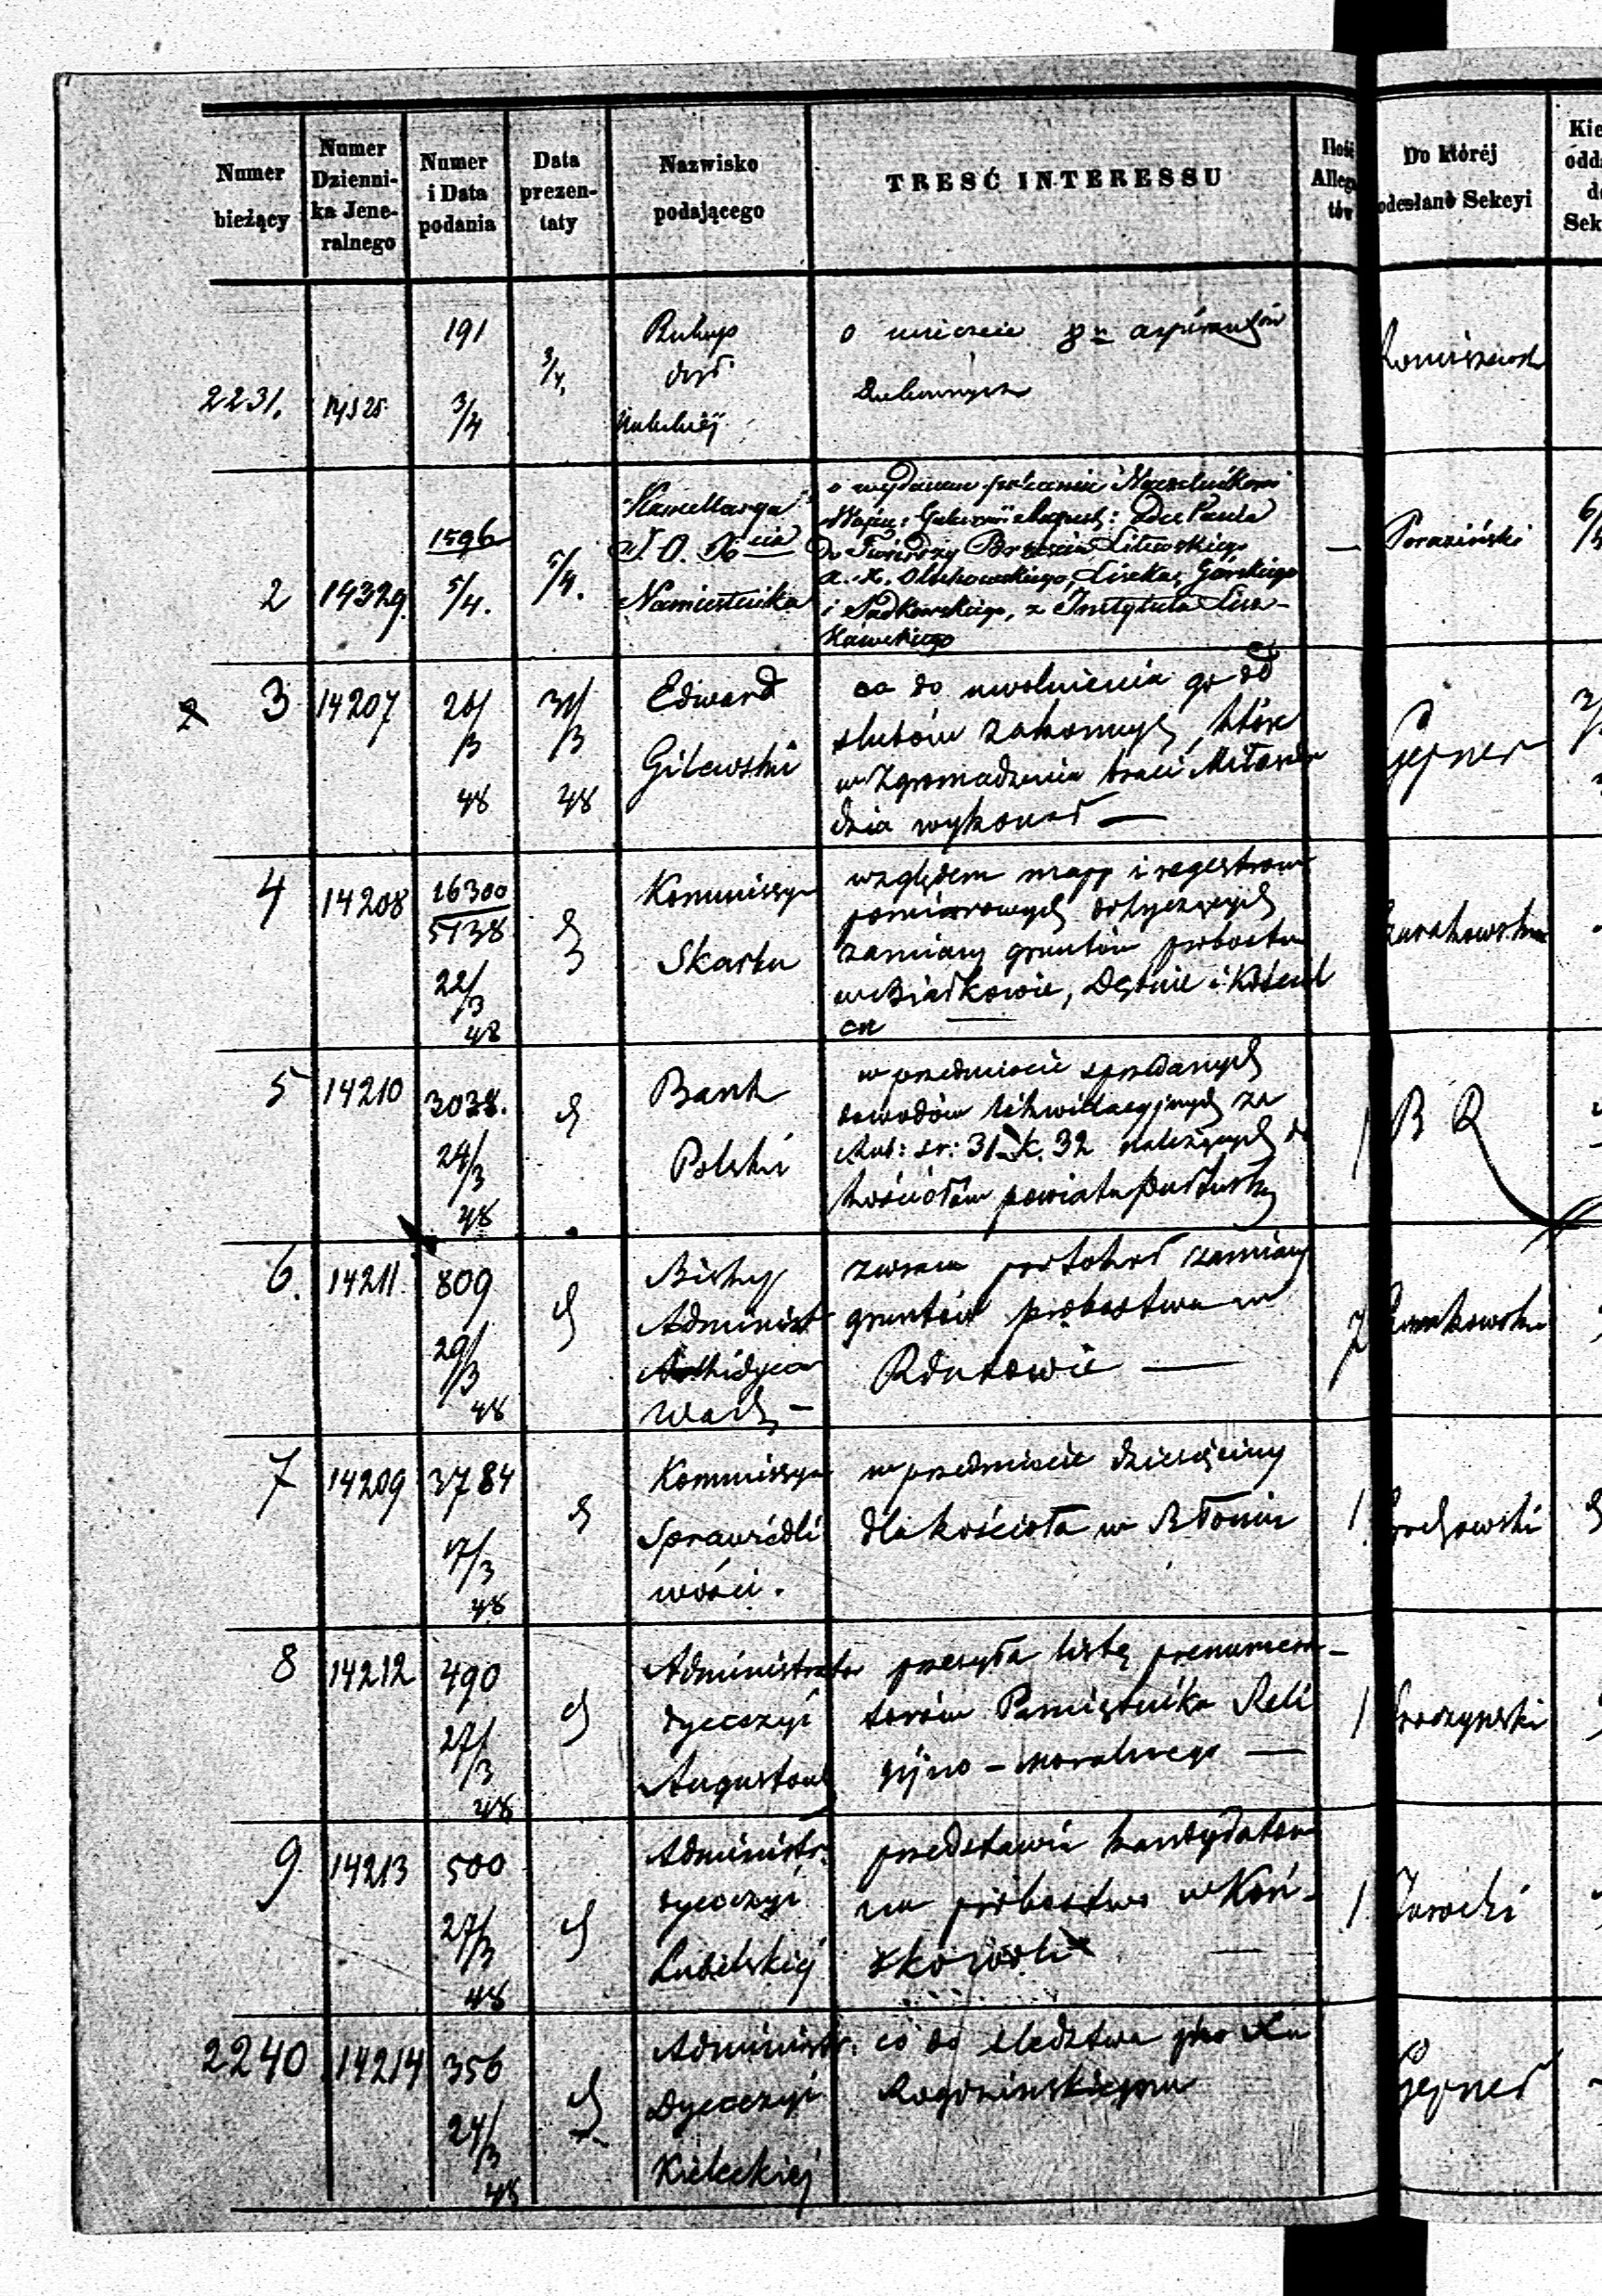 Numer bieżący
Numer Dzienni- ka Jene- ralnego
Numer i Data podania
Data prezen- taty
Nazwisko podającego
TRESĆ INTERESSU
Ilość Allega tów
Do któréj odesłano Sekcyi
Kie
odd
d
Sek
2231. 14525 191 3/4 3/4.
Biskup
dyd.
o
aspirantów
Duchownych
2 14329. 1596 5/4. 5/4.
Kancellarya
J. O. Xcia
Namiestnika
o wydanie polecenia Naczelnikowi
Wojen: Gubernii August:
do Twierdzy Brześcia Litewskiego
Olechowskiego, Liseka, Gorskiego
i Sadkowskiego, z Instytutu Lisz-
kowskiego
—
3 14207 28/3 48 31/3 48
Edward
Gilewski
co do uwolnienia go od
ślubów zakonnych które
w Zgromadzeniu braci Miłosier
dzia wykonał —
Gepner
4 14208 26300/5138 22/3 48
Kommissya
Skarbu
względem mapp i regestrów
pomiarowych dotyczących
zamiany gruntów probostw
w Białkowie, Dębnie i
5 14210 3038. 24/3 48
Bank
Polski
w przedmiocie sprzedanych
dowodów likwidacyjnych za
Rub: sr: 31 k. 32 należących do
kościołów powiatu Pułtusk
1 B R
6. 14211. 809 29/3 48
Biskup
Administ
Archidyec
Warsz —
zwraca protokoł zamiany
gruntów probostwa w
Rdutowie —
7
7 14209 3784 17/3 48
Kommissya
Sprawiedli
wości.
w przedmiocie dziesięciny
dla kościoła w Błoniu
1
8 14212 490 27/3 48
Administrator
dyecezyi
Augustows
przesyła listę prenumera-
torów Pamiętnika Reli
gijno-moralnego —
1
9 14213 500 27/3 48
Administr.
dyecezyi
Lubelskiej
przedstawia kandydatów
na probostwo w Koń-
skowoli —
1 Jarocki
2240 14214 356 24/3 48
Administr.
Dyecezyi
Kieleckiej
co do śledztwa pko Xu
Rogozinskiemu
Gepner